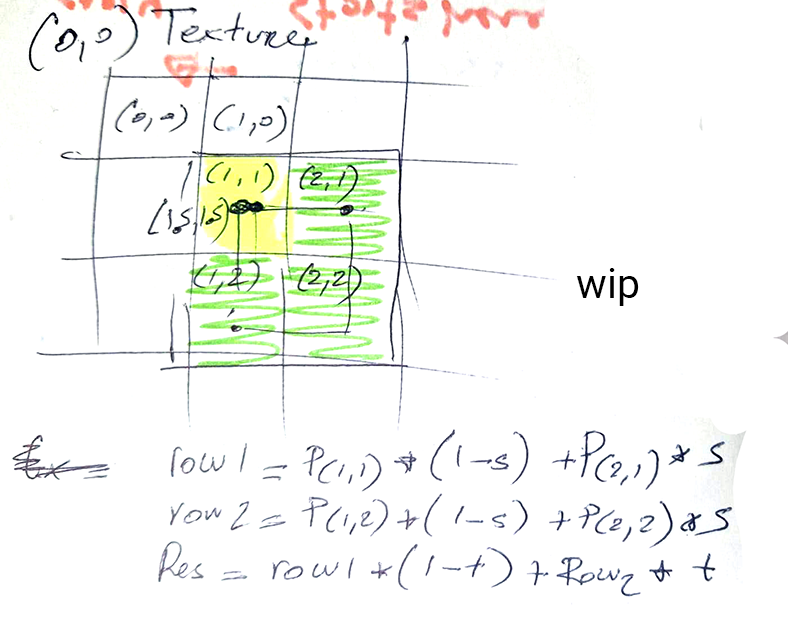 (0,0) Texture
(0,0) (1,0)
(1,1) (2,1)
(1.5,1.5)
(1,2) (2,2)
wip
row1 = P(1,1) * (1-s) + P(2,1) * s
row2 = P(1,2) * (1-s) + P(2,2) * s
Res = row1 * (1-t) + Row2 * t